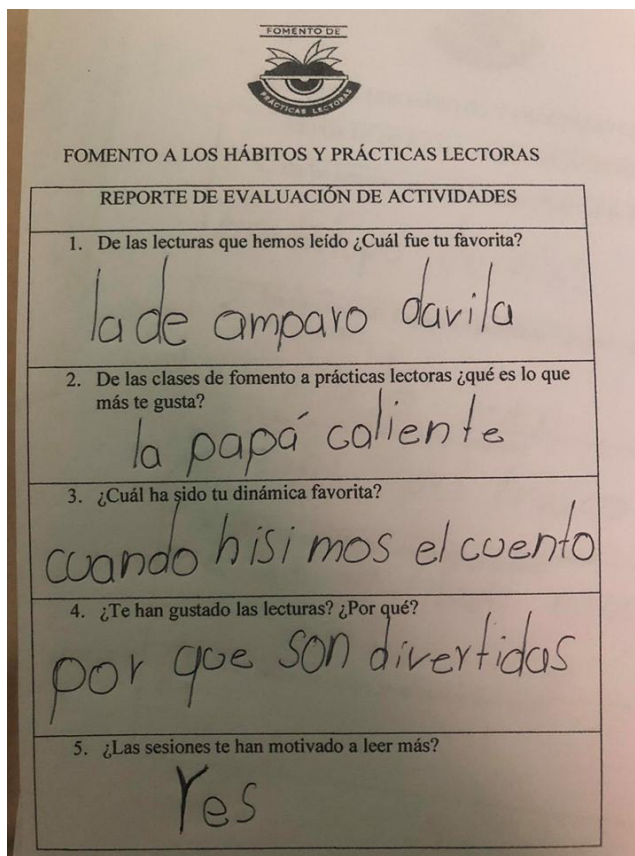 FOMENTO DE
PRÁCTICAS LECTORAS
FOMENTO A LOS HÁBITOS Y PRÁCTICAS LECTORAS
REPORTE DE EVALUACIÓN DE ACTIVIDADES
1. De las lecturas que hemos leído ¿Cuál fue tu favorita?
la de amparo davila
2. De las clases de fomento a prácticas lectoras ¿qué es lo que
más te gusta?
la papá caliente
3. ¿Cuál ha sido tu dinámica favorita?
cuando hisimos el cuento
4. ¿Te han gustado las lecturas? ¿Por qué?
por que son divertidas
5. ¿Las sesiones te han motivado a leer más?
Yes